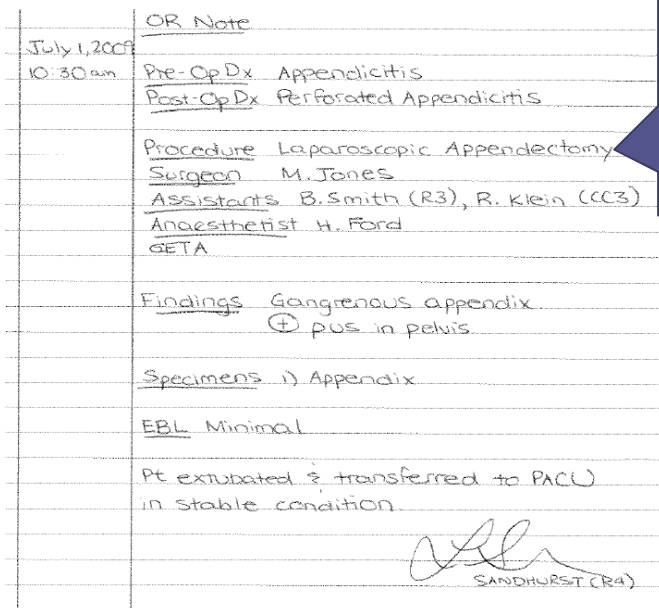 OR Note
July 1, 2009
10:30am Pre-Op Dx Appendicitis
Post-Op Dx Perforated Appendicitis
Procedure Laparoscopic Appendectomy
Surgeon M. Jones
Assistants B. Smith (R3), R. Klein (CC3)
Anaesthetist H. Ford
GETA
Findings Gangrenous appendix
⊕ pus in pelvis
Specimens i) Appendix
EBL Minimal
Pt extubated & transferred to PACU
in stable condition
SANDHURST (R4)